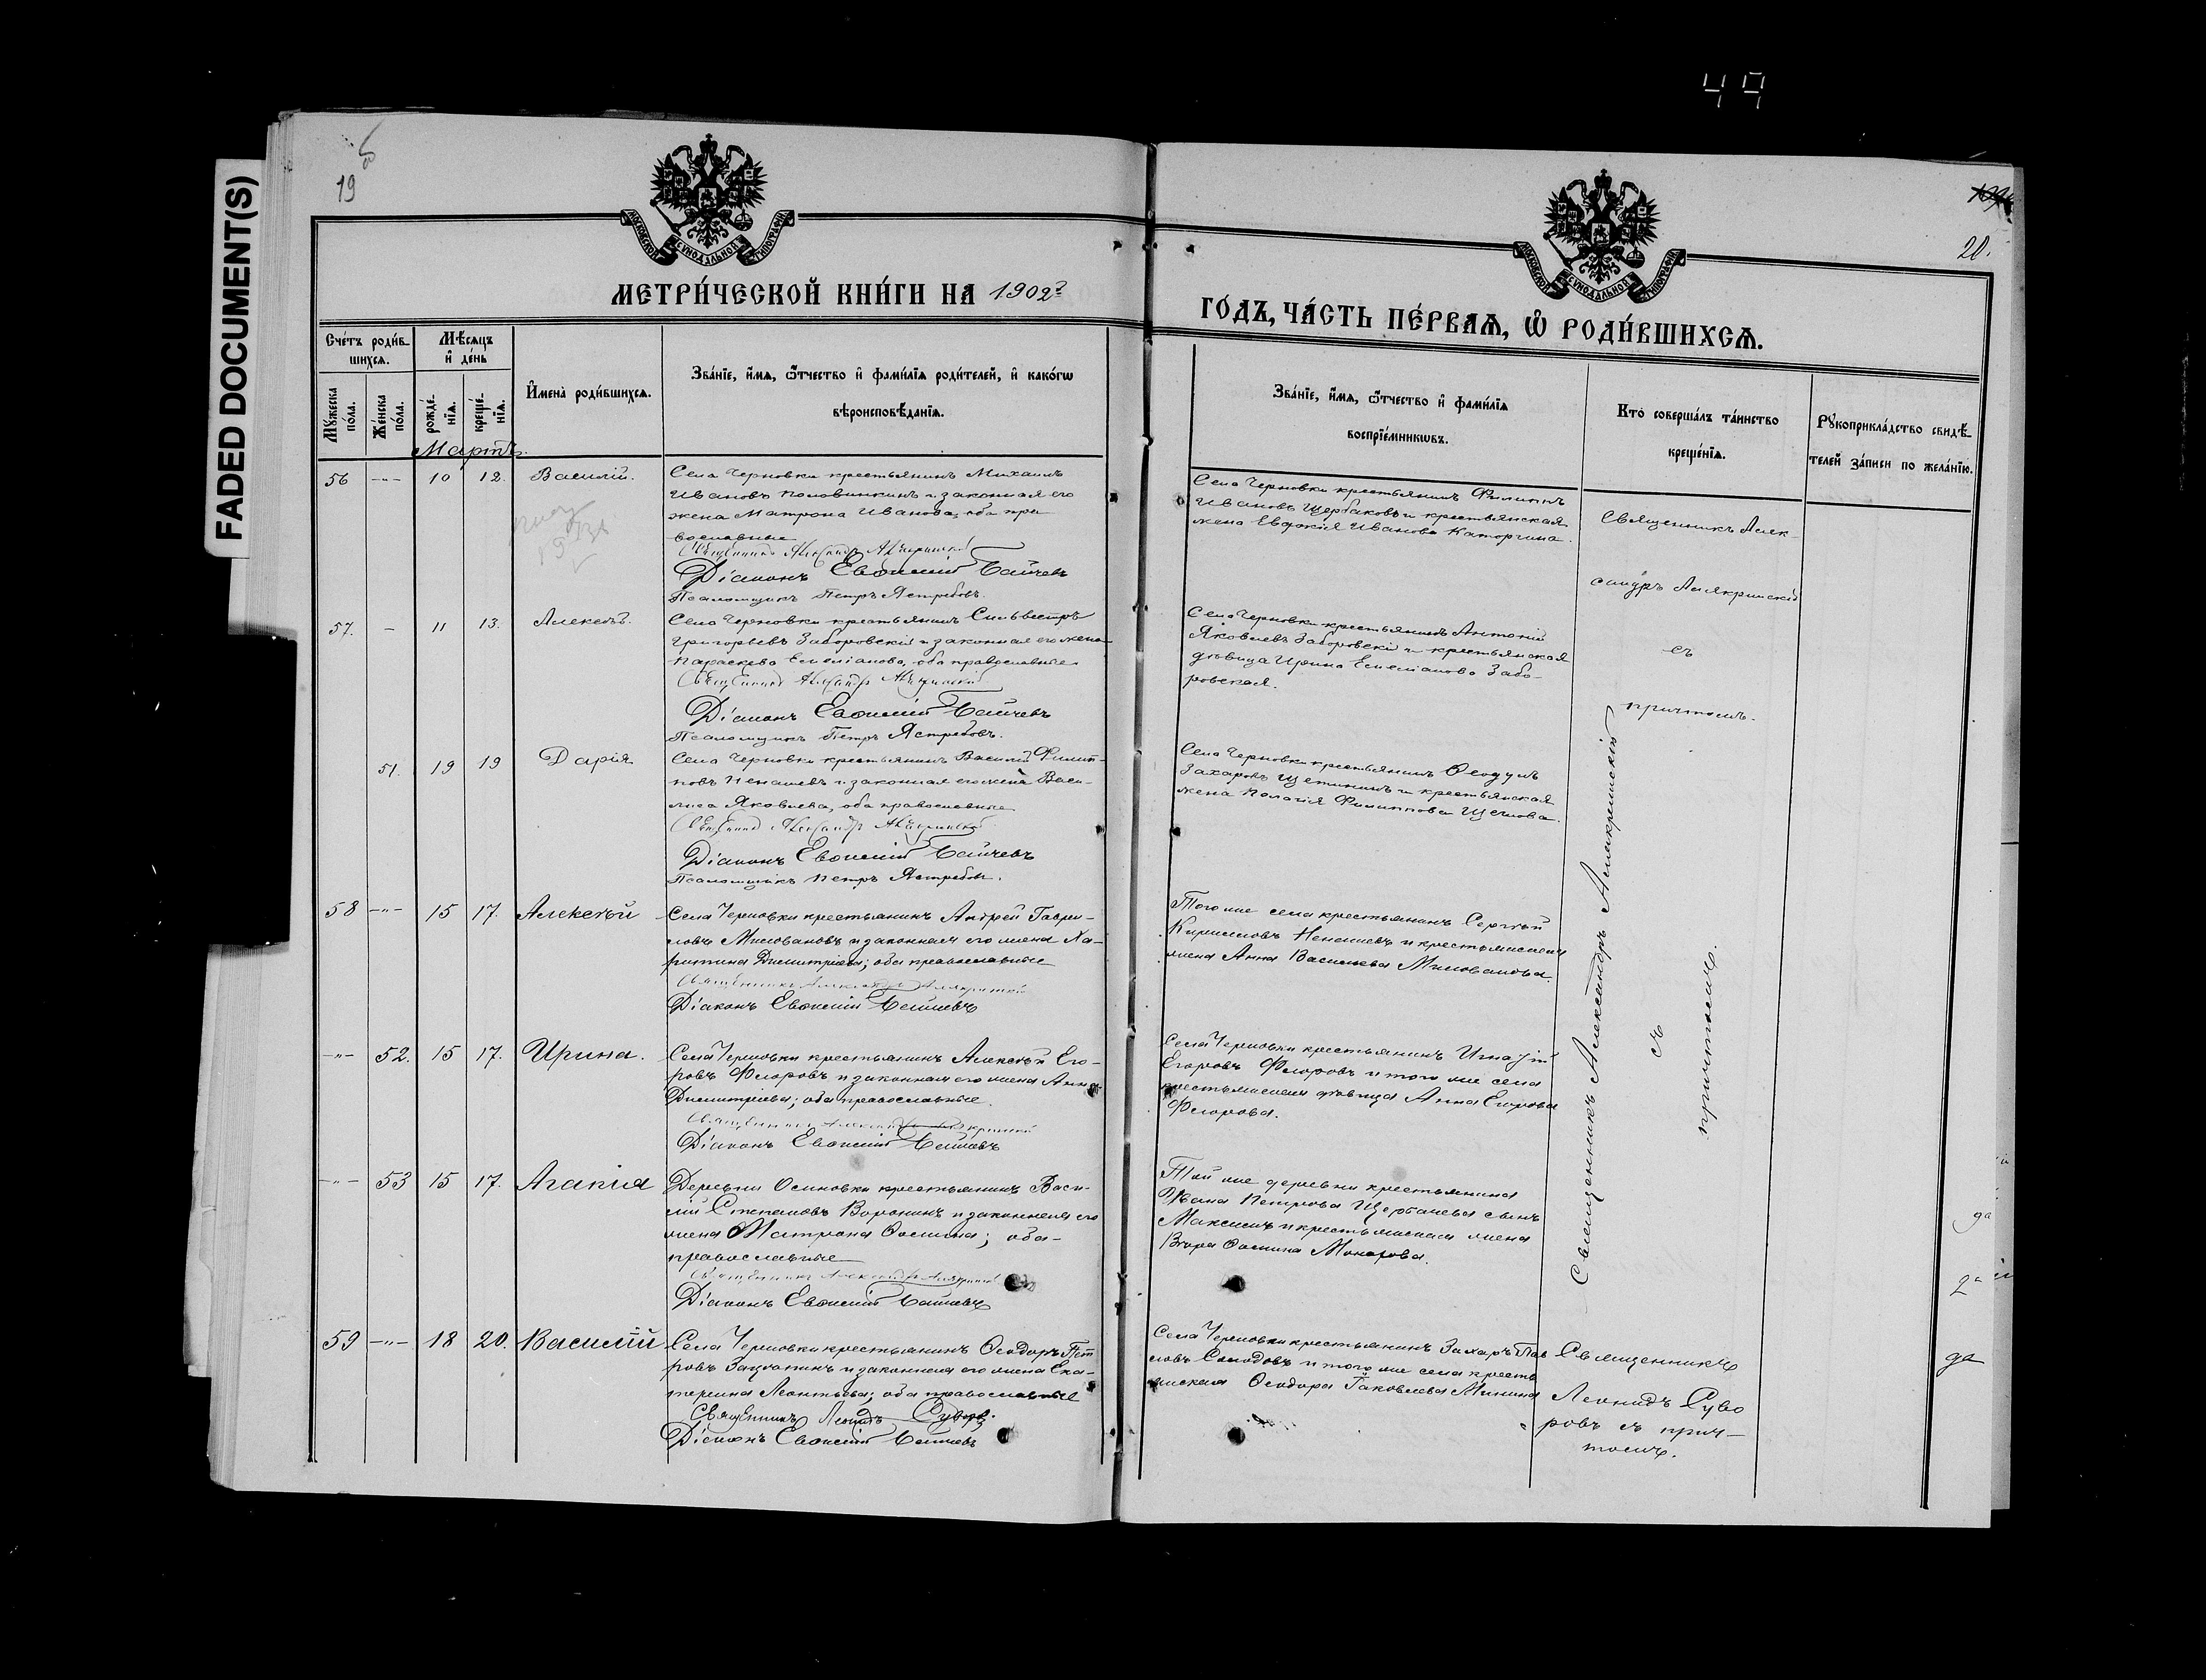 49
FADED DOCUMENT(S)
19
20.
МОСКОВСКОЙ СѴНОДАЛЬНОЙ ТИПОГРАФІИ
МОСКОВСКОЙ СѴНОДАЛЬНОЙ ТИПОГРАФІИ
МЕТРИ́ЧЕСКОЙ КНИ́ГИ НА 1902 г
ГО́ДЪ, ЧА́СТЬ ПЕ́РВАѦ, Ѡ҆ РОДИ́ВШИХСѦ.
Сче́тъ роди́в-
шихсѧ.
Мѣ́сѧцъ
и҆ де́нь
Мꙋ́жеска по́ла.
Же́нска по́ла.
рожде́-нїѧ.
креще́-нїѧ.
И҆мена̀ роди́вшихсѧ.
Зва́нїе, и҆́мѧ, ѻ҆́тчество и҆ фами́лїѧ роди́телей, и҆ како́гѡ
вѣроисповѣ́данїѧ.
Зва́нїе, и҆́мѧ, ѻ҆́тчество и҆ фами́лїѧ
воспрїе́мникѡвъ.
Кто̀ соверша́лъ та́инство
креще́нїѧ.
Рꙋкоприкла́дство свидѣ́-
телей за́писи по жела́нїю.
Мартъ.
56 -"- 10 12. Василій.
Села Черновки крестьянинъ Михаилъ
Ивановъ Половинкинъ и законная его
жена Матрона Иванова, оба пра
вославные
Священникъ Александръ Алякринскій
Діаконъ Евѳимій Байчевъ
Псаломщикъ Петръ Ястребовъ.
Села Черновки крестьянинъ Филиппъ
Ивановъ Щербаковъ и крестьянская
жена Евфимія Иванова Каторгина.
Священникъ Алек-
сандръ Алякринскій
съ
причтомъ.
57. - 11 13. Алексѣй.
Села Черновки крестьянинъ Сильвестръ
Григорьевъ Заборовскій и законная его жена
Параскева Емеліанова, оба православные
Священникъ Александръ Алякринскій
Діаконъ Евѳимій Байчевъ
Псаломщикъ Петръ Ястребовъ.
Села Черновки крестьянинъ Антоній
Яковлевъ Заборовскій и крестьянская
дѣвица Ирина Емеліанова Забо-
ровская.
51. 19 19 Дарія
Села Черновки крестьянинъ Василій Филип-
повъ Ненашевъ и законная его жена Васи-
лиса Яковлева, оба православные
Священникъ Александръ Алякринскій
Діаконъ Евѳимій Байчевъ
Псаломщикъ Петръ Ястребовъ.
Села Черновки крестьянинъ Ѳеодулъ
Захаровъ Щетининъ и крестьянская
жена Пелагія Филиппова
58 -"- 15 17. Алексѣй
Села Черновки крестьянинъ Андрей Гаври-
ловъ Миловановъ и законная его жена Ха-
ритина Димитріева; оба православные
Священникъ Александръ Алякринскій
Діаконъ Евѳимій Байчевъ
Того же села крестьянинъ Сергѣй
Кирилловъ Ненашевъ и крестьянская
жена Анна Васильева Милованова.
Священникъ Александръ Алякринскій
съ
причтомъ.
-"- 52. 15 17. Ирина.
Села Черновки крестьянинъ Алексѣй Его-
ровъ Флоровъ и законная его жена Анна
Димитріева; оба православные.
Священникъ Александръ Алякринскій
Діаконъ Евѳимій Байчевъ
Села Черновки крестьянинъ Игнатій
Егоровъ Флоровъ и того же села
крестьянская дѣвица Анна Егорова
Флорова.
-"- 53 15 17. Агапія
Деревни Осиновки крестьянинъ Васи-
лій Степановъ Воронинъ и законная его
жена Матрона Ѳомина; оба
православные
Священникъ Александръ Алякринскій
Діаконъ Евѳимій Байчевъ
Той же деревни крестьянина
Ивана Петрова Щербачева сынъ
Максимъ и крестьянская жена
Вѣра Ѳомина
59 -"- 18 20. Василій
Села Черновки крестьянинъ Ѳеодоръ Пет
ровъ Зацепинъ и законная его жена Ека-
терина Леонтьева; оба православные
Священникъ Леонидъ Суворовъ.
Діаконъ Евѳимій Байчевъ
Села Черновки крестьянинъ Захаръ Пав
ловъ Солодовъ и того же села кресть
янская Ѳеодора Іаковлева Минина
Священникъ
Леонидъ Суво
ровъ съ прич-
томъ.